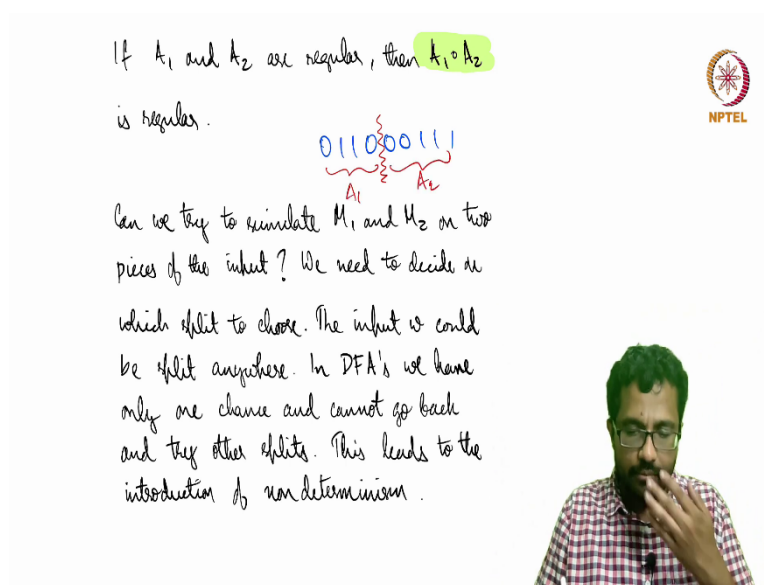 If A₁ and A₂ are regular, then A₁∘A₂
NPTEL
is regular.
011000111
A₁ A₂
Can we try to simulate M₁ and M₂ on two
pieces of the input? We need to decide on
which split to choose. The input w could
be split anywhere. In DFA's we have
only one chance and cannot go back
and try other splits. This leads to the
introduction of non determinism.